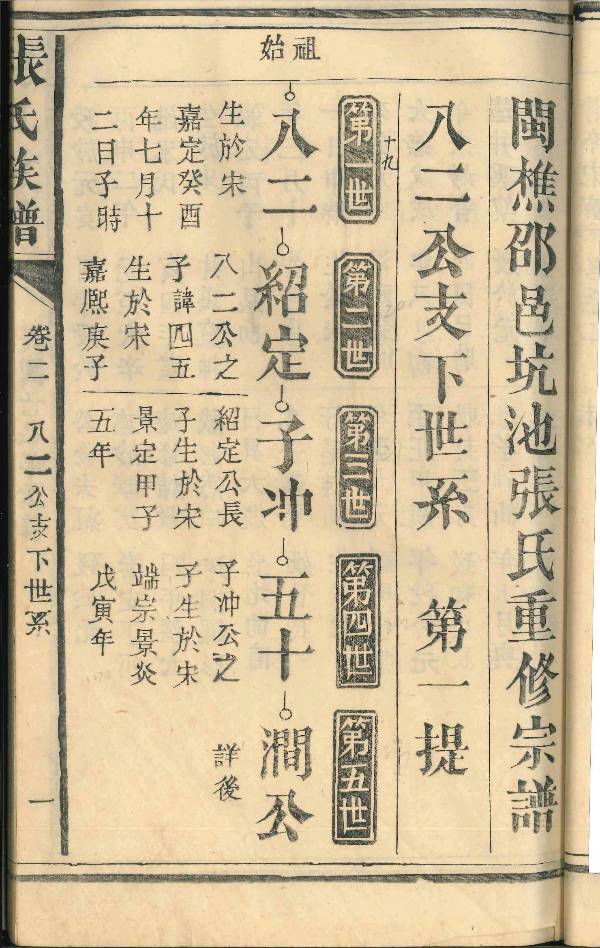 閩樵邵邑坑池張氏重修宗譜
八二公支下世系 第一提
十九
第一世
第二世
第三世
第四世
第五世
始祖
八二
紹定
子冲
五十
澗公
生於宋
嘉定癸酉
年七月十
二日子時
八二公之
子諱四五
生於宋
嘉熙庚子
紹定公長
子生於宋
景定甲子
五年
子冲公之
子生於宋
端宗景炎
戊寅年
詳後
張氏族譜
卷二
八二公支下世系
一